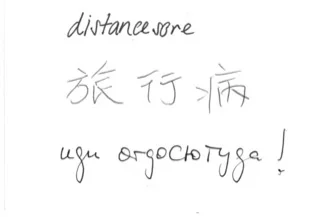 distancesore
旅行病
иди отдосютуда!